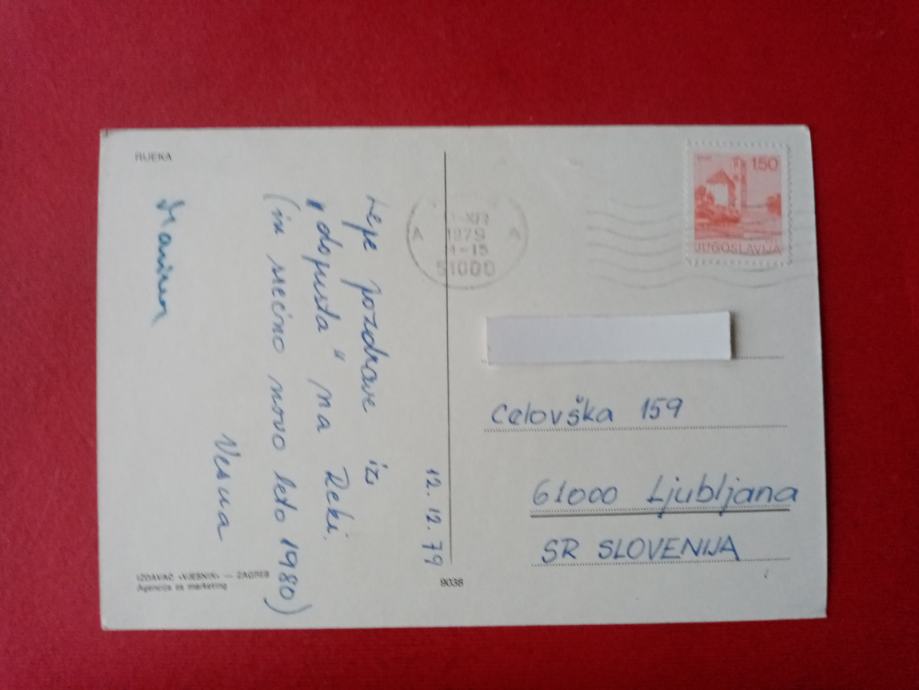 RIJEKA
12. 12. 79
Lepe pozdrave iz
„dopusta" na Reki.
(in srečno novo leto 1980)
Vesna
IZDAVAČ »VJESNIK« — ZAGREB
Agencija za marketing
9038
1979
51000
A A
1.50
JUGOSLAVIJA
Celovška 159
61000 Ljubljana
SR SLOVENIJA